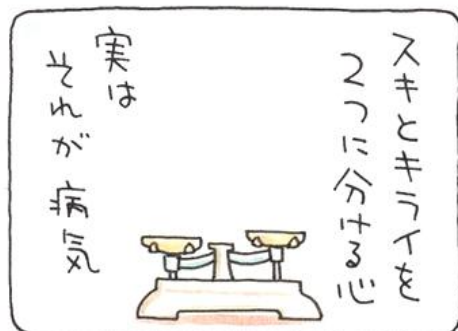 スキとキライを
2つに分ける心
実は
それが病気